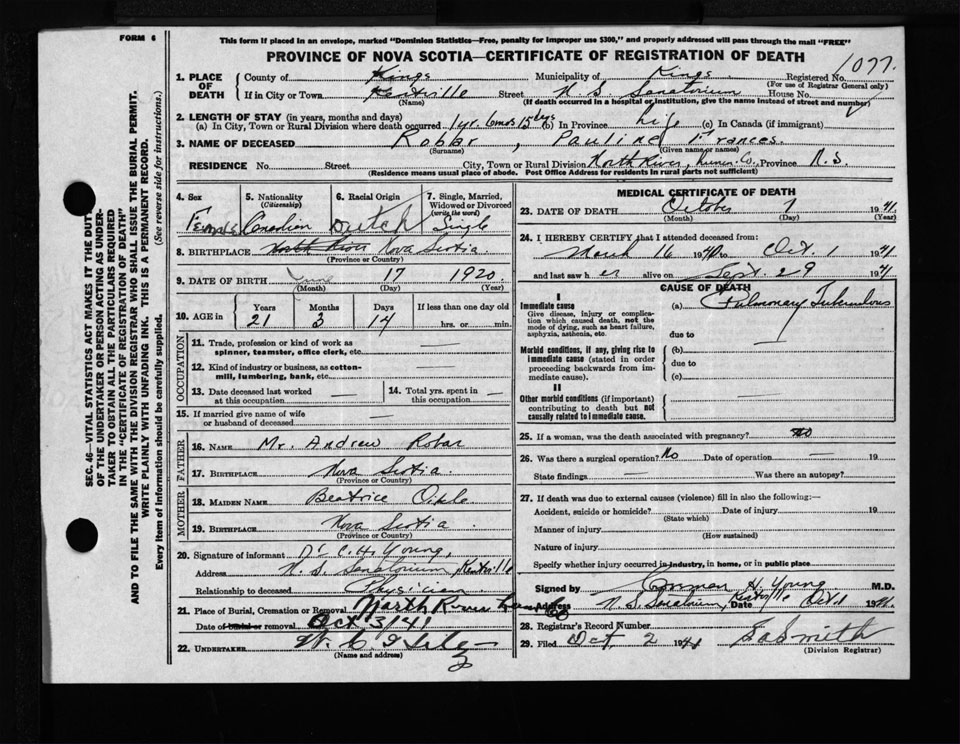 FORM 6
This form if placed in an envelope, marked "Dominion Statistics—Free, penalty for improper use $300," and properly addressed will pass through the mail "FREE"
PROVINCE OF NOVA SCOTIA—CERTIFICATE OF REGISTRATION OF DEATH
1. PLACE OF DEATH
County of Kings Municipality of Kings Registered No. 1077
(For use of Registrar General only)
If in City or Town Kentville Street N. S. Sanatorium House No.
(Name) (If death occurred in a hospital or institution, give the name instead of street and number)
2. LENGTH OF STAY (in years, months and days)
(a) In City, Town or Rural Division where death occurred 1 yr. 6 mos 15 days (b) In Province life (c) In Canada (if immigrant)
3. NAME OF DECEASED Robar, Pauline Frances.
(Surname) (Given name or names)
RESIDENCE No. Street City, Town or Rural Division North River, Lunen. Co., Province N. S.
(Residence means usual place of abode. Post Office Address for residents in rural parts not sufficient)
4. Sex Female
5. Nationality (Citizenship) Canadian
6. Racial Origin Dutch
7. Single, Married, Widowed or Divorced (write the word) Single
8. BIRTHPLACE North River Nova Scotia.
(Province or Country)
9. DATE OF BIRTH June 17 1920
(Month) (Day) (Year)
10. AGE in Years 21 Months 3 Days 14 If less than one day old
hrs. or min.
OCCUPATION
11. Trade, profession or kind of work as spinner, teamster, office clerk, etc. —
12. Kind of industry or business, as cotton-mill, lumbering, bank, etc. —
13. Date deceased last worked at this occupation —
14. Total yrs. spent in this occupation —
15. If married give name of wife or husband of deceased —
FATHER
16. NAME Mr. Andrew Robar
17. BIRTHPLACE Nova Scotia.
(Province or Country)
MOTHER
18. MAIDEN NAME Beatrice Oikle
19. BIRTHPLACE Nova Scotia.
(Province or Country)
20. Signature of informant Dr. C. H. Young,
Address N. S. Sanatorium, Kentville
Relationship to deceased Physician
21. Place of Burial, Cremation or Removal North River
Date of burial or removal Oct 3/41
22. UNDERTAKER
(Name and address)
MEDICAL CERTIFICATE OF DEATH
23. DATE OF DEATH October 1 1941
(Month) (Day) (Year)
24. I HEREBY CERTIFY that I attended deceased from:
March 16 1940 to Oct. 1 1941
and last saw her alive on Sept. 29 1941
CAUSE OF DEATH
I
Immediate cause (a) Pulmonary Tuberculosis
Give disease, injury or complication which caused death, not the mode of dying, such as heart failure, asphyxia, asthenia, etc.
due to
Morbid conditions, if any, giving rise to immediate cause (stated in order proceeding backwards from immediate cause).
(b) —
due to
(c)
II
Other morbid conditions (if important) contributing to death but not causally related to immediate cause.
25. If a woman, was the death associated with pregnancy? No
26. Was there a surgical operation? No Date of operation — 19
State findings — Was there an autopsy?
27. If death was due to external causes (violence) fill in also the following:—
Accident, suicide or homicide? Date of injury 19
(State which)
Manner of injury
(How sustained)
Nature of injury
Specify whether injury occurred in industry, in home, or in public place
Signed by H. Young M.D.
Address N. S. Sanatorium, Kentville Date Oct 1 1941.
28. Registrar's Record Number
29. Filed Oct 2 1941 Smith
(Division Registrar)
SEC. 46—VITAL STATISTICS ACT MAKES IT THE DUTY
OF THE UNDERTAKER OR PERSON ACTING AS UNDER-
TAKER TO OBTAIN ALL THE PARTICULARS REQUIRED
IN THE "CERTIFICATE OF REGISTRATION OF DEATH"
AND TO FILE THE SAME WITH THE DIVISION REGISTRAR WHO SHALL ISSUE THE BURIAL PERMIT.
WRITE PLAINLY WITH UNFADING INK. THIS IS A PERMANENT RECORD.
Every item of information should be carefully supplied. (See reverse side for instructions.)